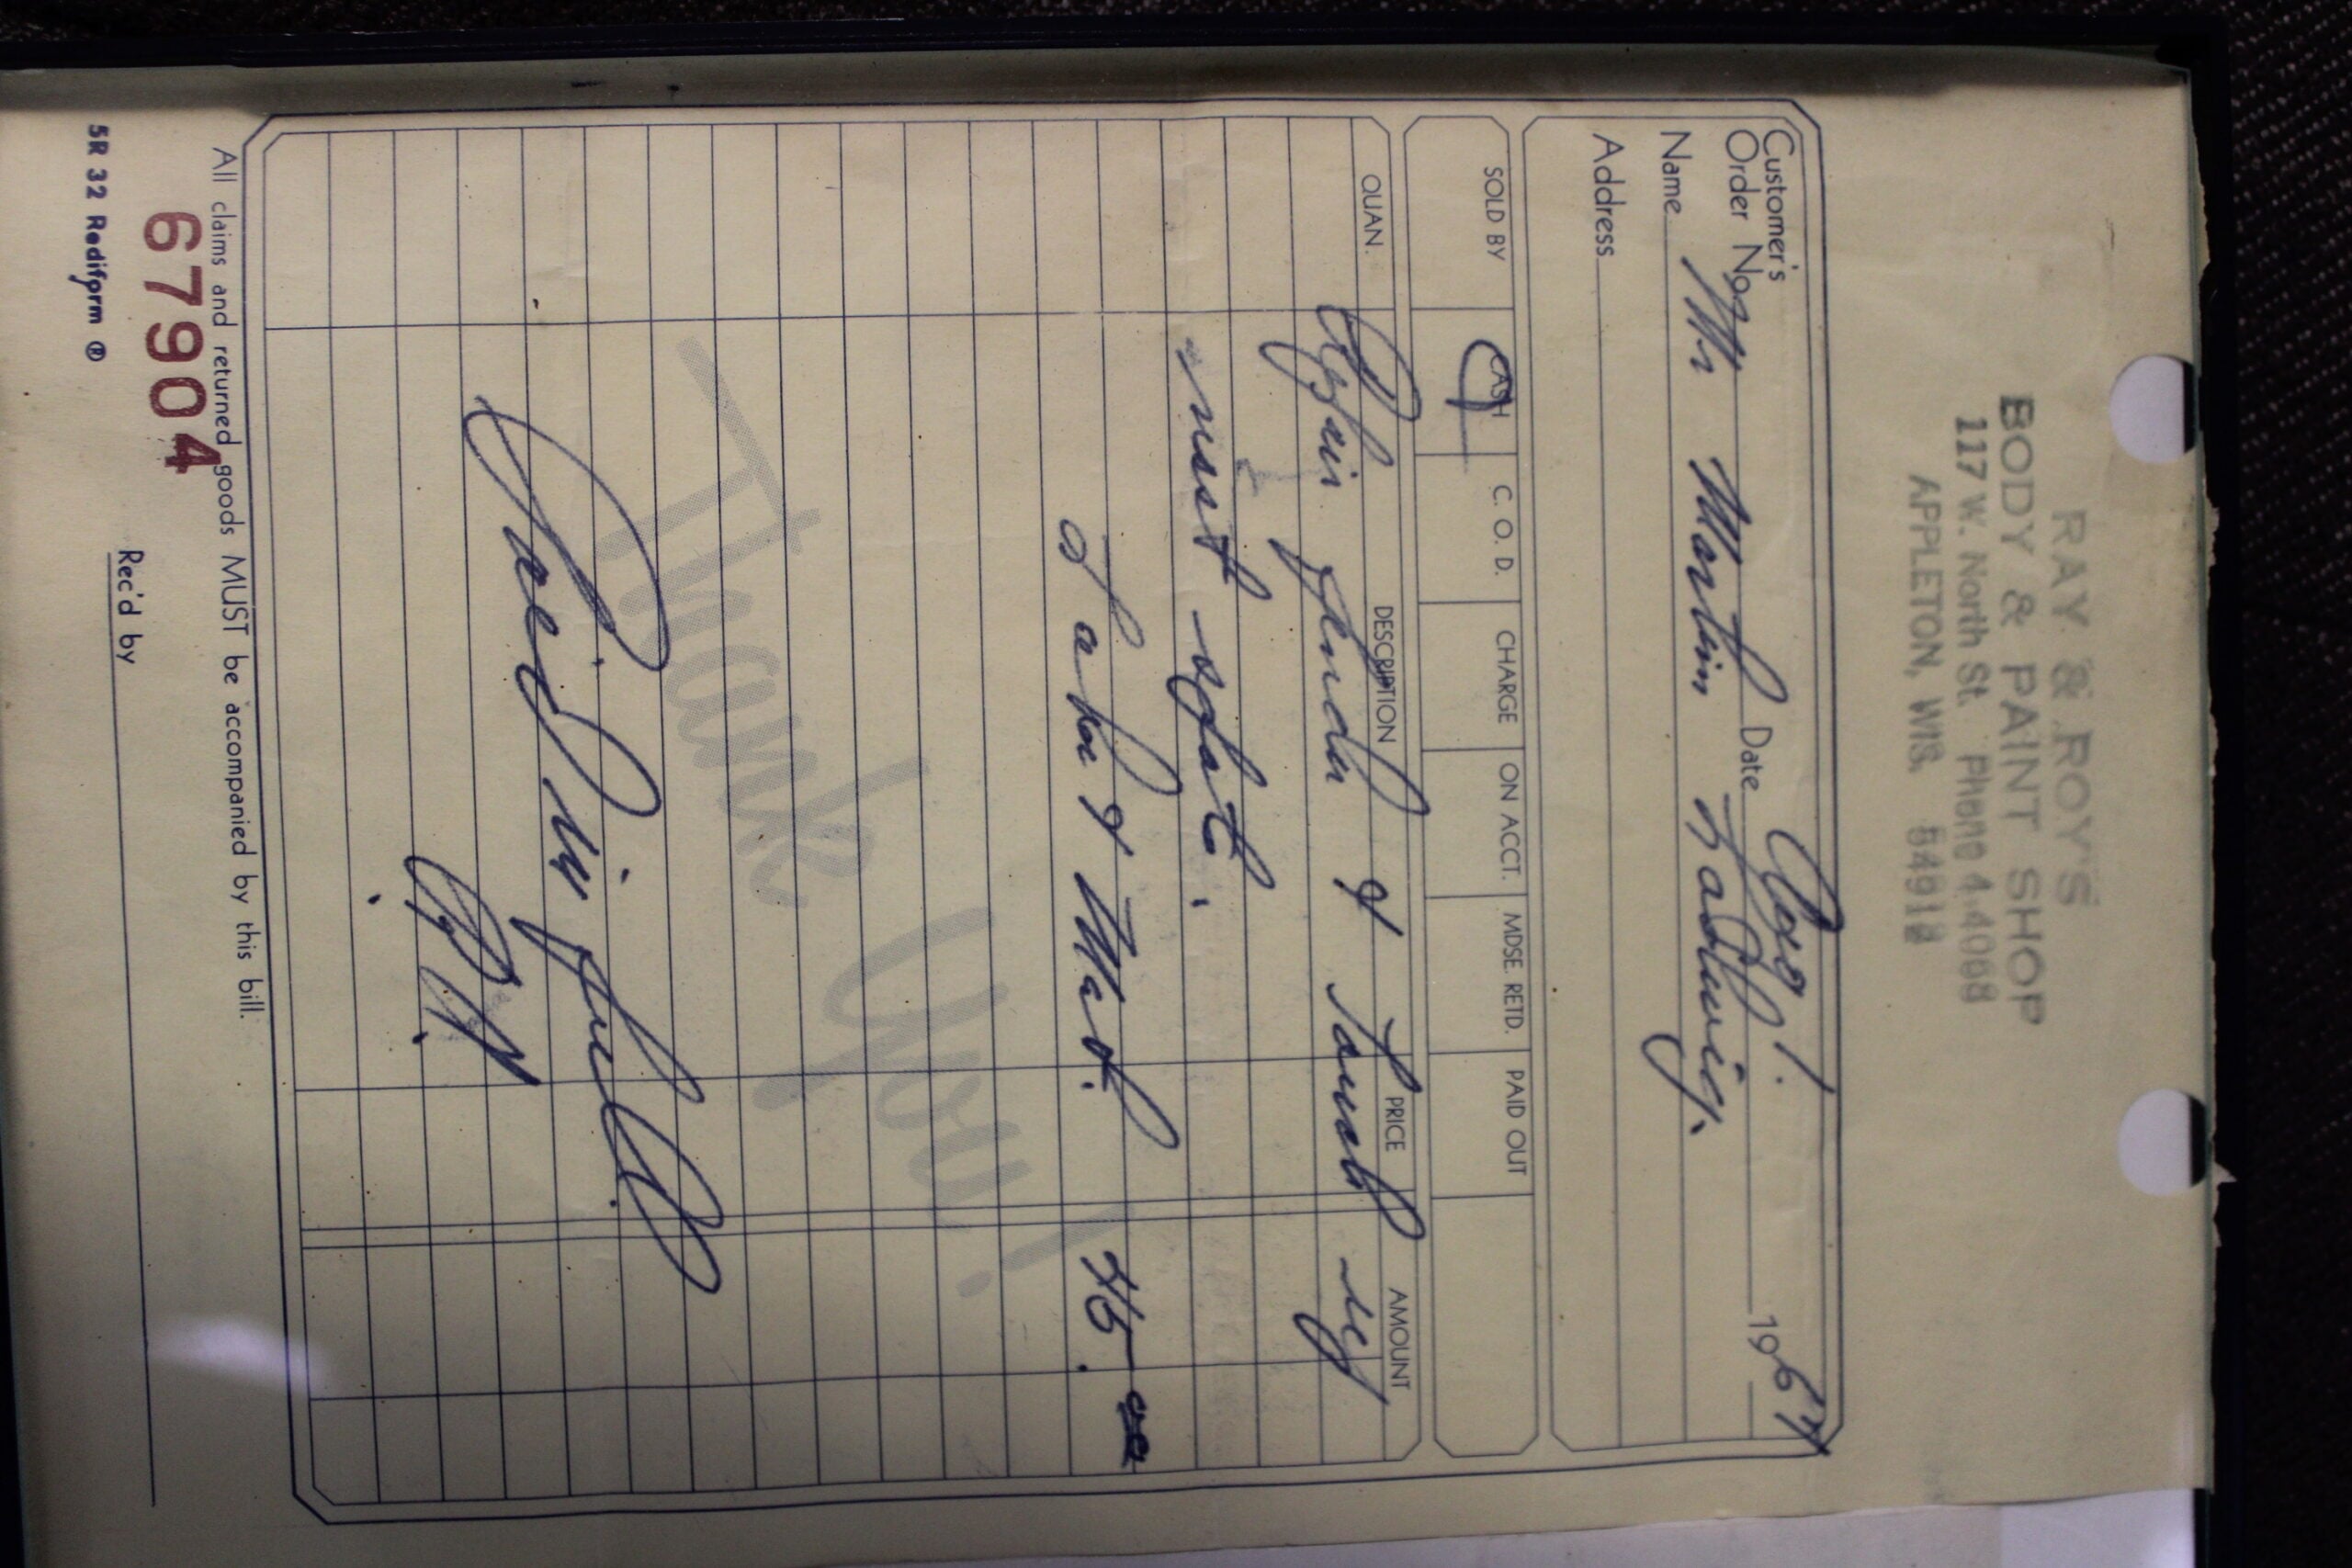 RAY & ROY'S
BODY & PAINT SHOP
117 W. North St. Phone 4-4008
APPLETON, WIS. 54912
Customer's
Order No. Date Aug 1. 1967
Name Mr Martin
Address
SOLD BY CASH C. O. D. CHARGE ON ACCT. MDSE. RETD. PAID OUT
QUAN. DESCRIPTION PRICE AMOUNT
Repair fender &
rust spots.
Labor & Mat. 45.00
Thank You!
Paid in full
All claims and returned goods MUST be accompanied by this bill.
67904
Rec'd by
5R 32 Rediform ®